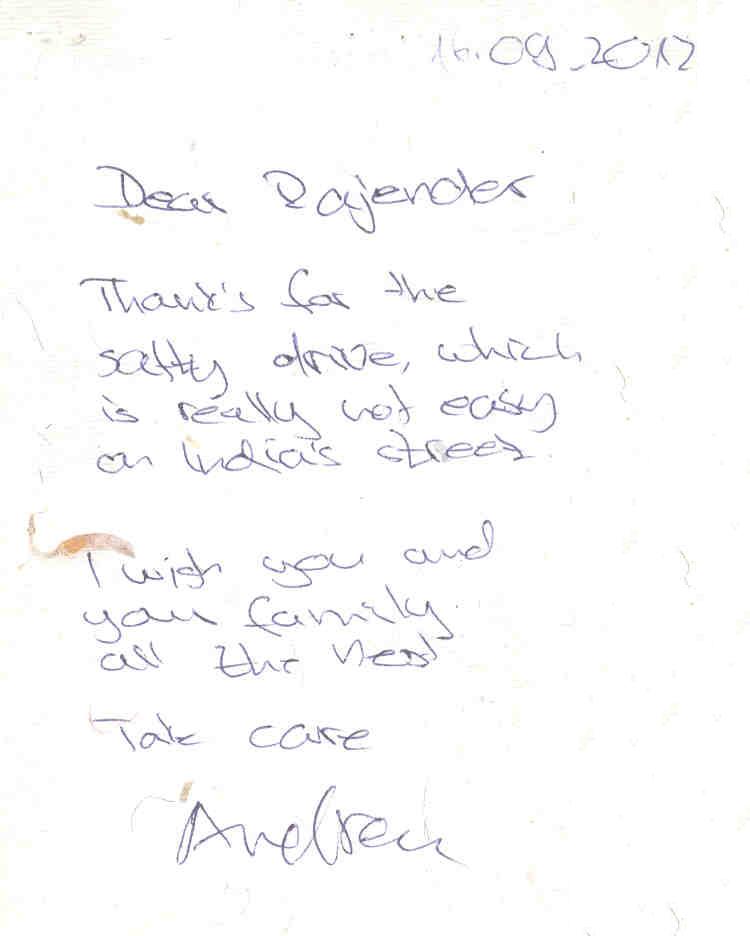 16.09.2012
Dear Rajender
Thank's for the
saftty drive, which
is really not easy
on India's street.
I wish you and
your family
all the best
Take care
Andrea